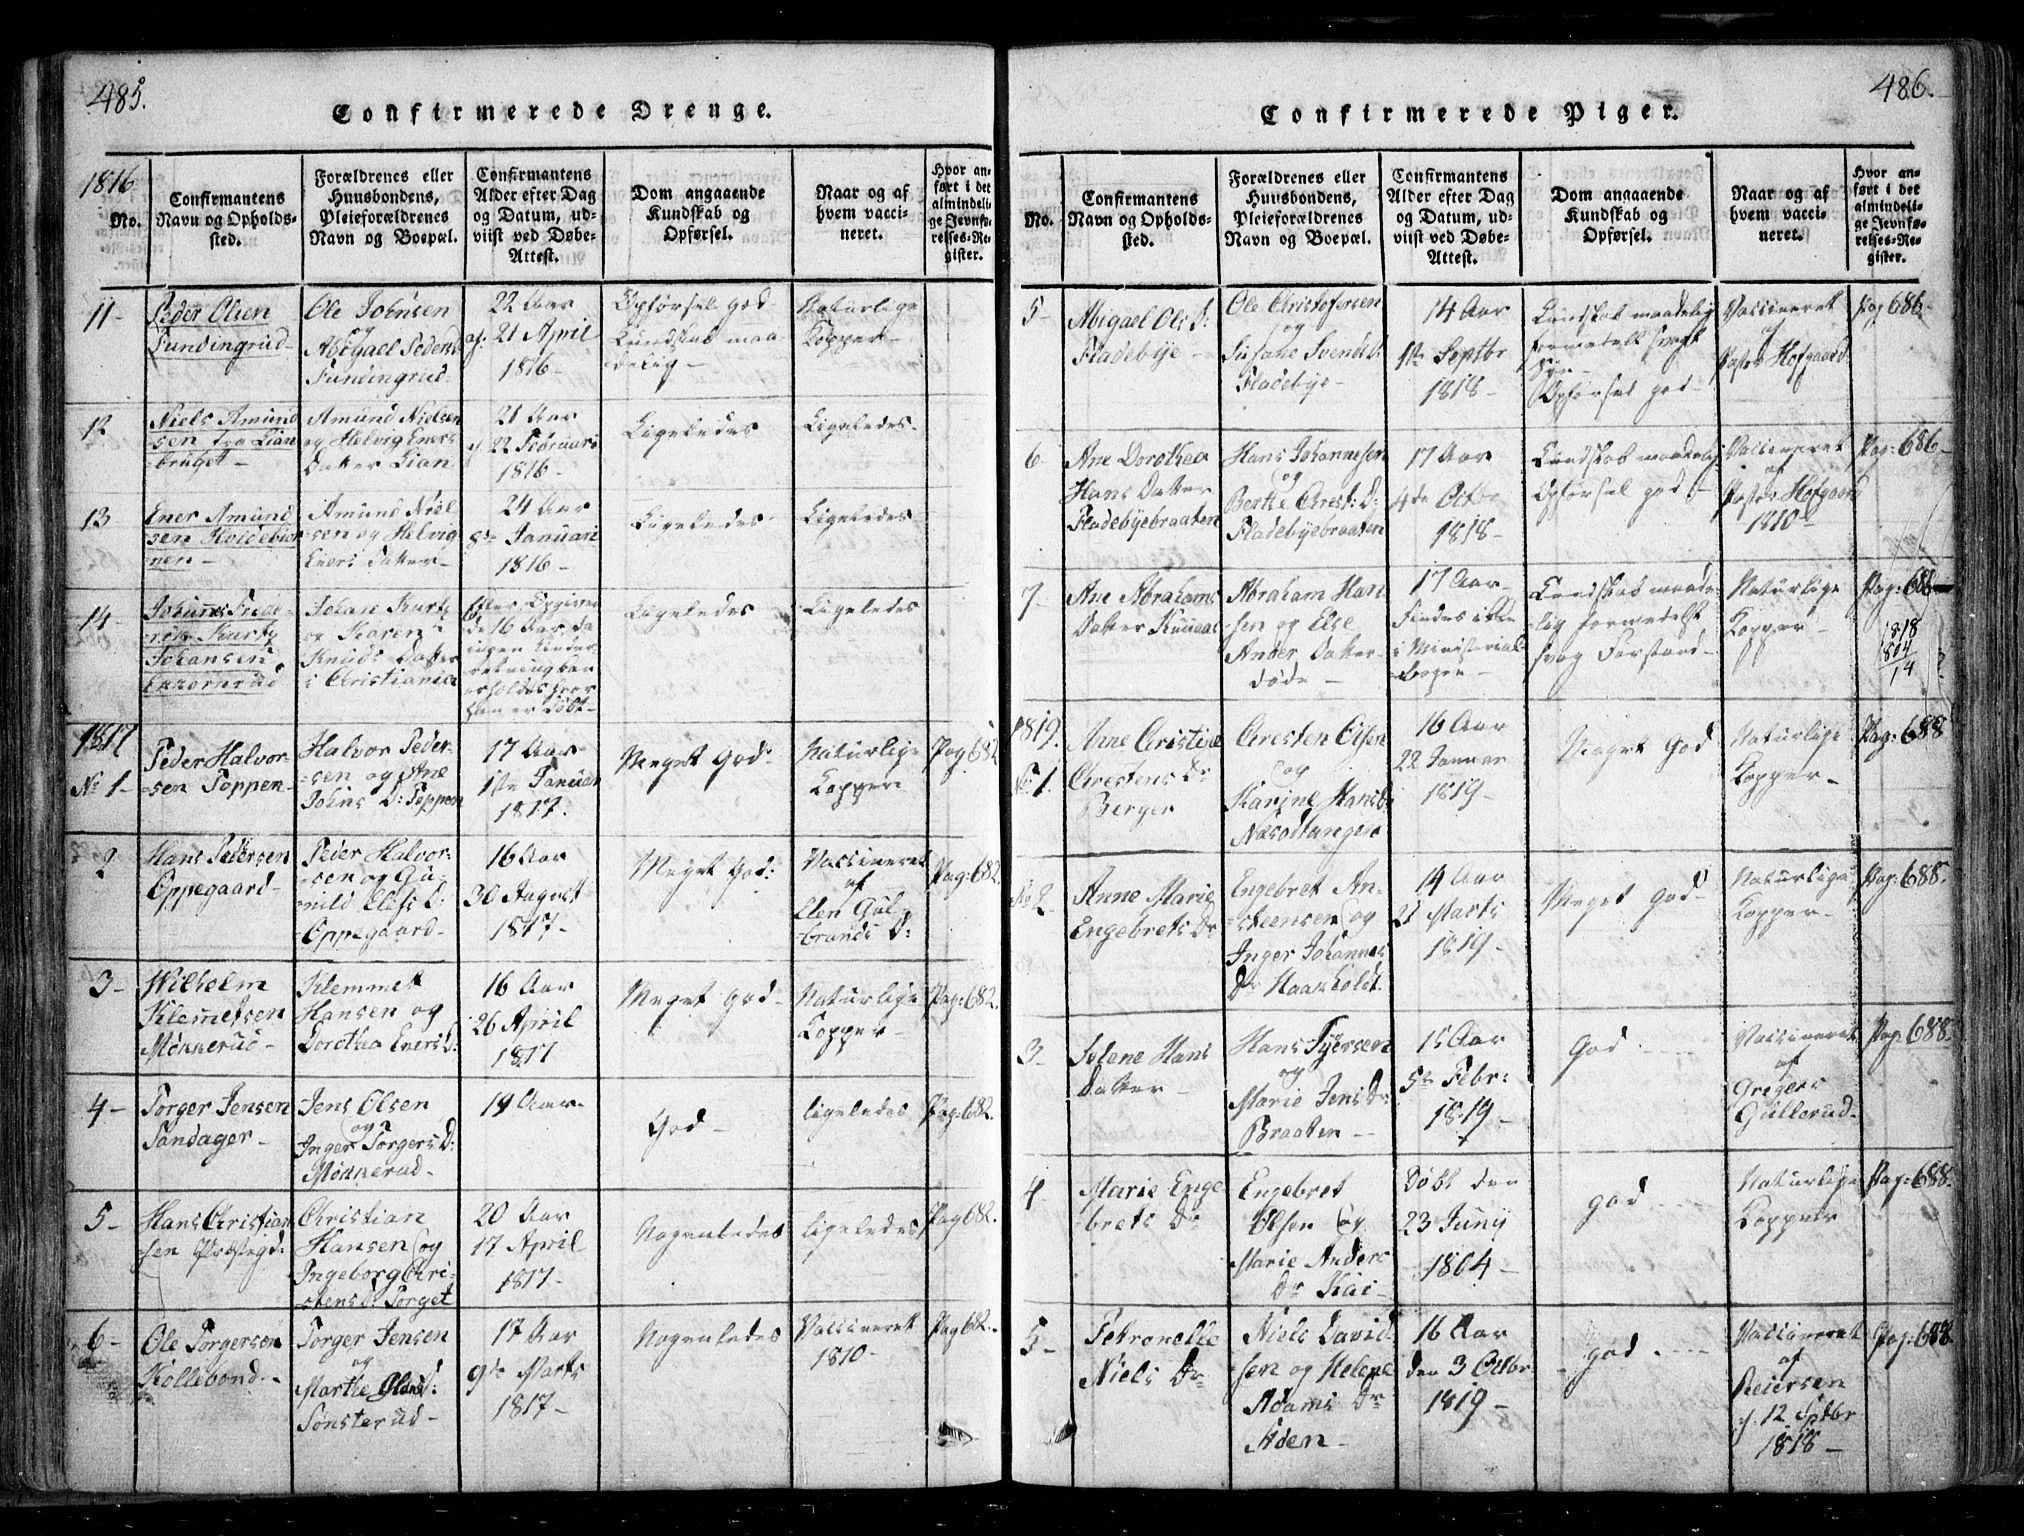 485.
Confirmerede Drenge.
1816
No.
Confirmantens
Navn og Opholds-
sted.
Forældrenes eller
Huusbondens,
Pleieforældrenes
Navn og Boepæl.
Confirmantens
Alder efter Dag
og Datum, ud-
viist ved Døbe-
Attest.
Dom angaaende
Kundskab og
Opførsel.
Naar og af
hvem vacci-
neret.
Hvor an-
ført i det
almindeli-
ge Jevnfø-
relses-Re-
gister.
11-
Peder Olsen
Fundingrud-
Ole Johnsen
og
Abigael Peders
Fundingrud-
22 Aar
21 April
1816-
Opførsel god
Kundskab maa
delig-
Naturlige
Kopper-
12
Niels Amund
sen fra Lian
bruget-
Amund Nielsen
og Helvig Eners
Datter Lian
21 Aar
22 Februari
1816-
Ligeledes
Ligeledes-
13
Ener Amund
sen Hvidebiør
nen-
Amund Niel
sen og Helvig
Eners Datter-
24 Aar
8de Januari
1816-
Ligeledes-
Ligeledes
14
Johannes Frede-
rik Kurtz
Johansen
Johan Kurtz
og Karen
Knuds Datter
i Christiania
Efter Opgiven
de 16 Aar, da
ingen Under
retning kan
erholdes hvor
han er døbt-
Ligeledes
Ligeledes
1817
No 1-
Peder Halvor-
sen Toppen-
Halvor Peder-
sen og Ane
Johns D: Toppen
17 Aar
1ste Januar
1817.
Meget God:
Naturlige
Kopper
Pag 682
2
Hans Pedersen
Oppegaard-
Peder Halvor-
sen og Gu-
nild Elias D:
Oppegaard-
16 Aar
30 August
1817-
Meget God:
Vaccineret
af
Elen Gul
brands D:
Pag: 682.
3-
Wilhelm
Klemetsen
Mønnerud-
Klemmet
Hansen og
Dorothea Eners D:
16 Aar
26 April
1817
Meget God-
Naturlige
Kopper-
Pag: 682.
4-
Torger Jensen
Sandager-
Jens Olsen
og
Inger Torgers D:
Mønnerud-
19 Aar-
God-
ligeledes
Pag: 682.
5-
Hans Christian
sen Præstegd:
Christian
Hansen og
Ingeborg Cri-
stens D: Torget
20 Aar
17 April
1817-
Nogenledes
ligeledes
Pag 682.
6-
Ole Torgersen
Kollebond-
Torger Jensen
og
Marthe Olds D:
Sønsterud-
17 Aar
9de Marts
1817-
Nogenledes
Vaccineret
1810-
Pag 682.
486.
Confirmerede Piger.
No.
Confirmantens
Navn og Opholds-
sted.
Forældrenes eller
Huusbondens,
Pleieforældrenes
Navn og Boepæl.
Confirmantens
Alder efter Dag
og Datum, ud-
viist ved Døbe-
Attest.
Dom angaaende
Kundskab og
Opførsel.
Naar og af
hvem vacci-
neret.
Hvor an-
ført i det
almindeli-
ge Jevnfø-
relses-Re-
gister.
5-
Abigael Ols D:
Fladebye-
Ole Christofersen
og
Susane Svends D:
Fladebye-
14 Aar
1ste Septbr
1818-
Kundskab maadelig
formedelst svagt
Syn-
Opførsel god-
Vaccineret
af
Pastor Hofgaard
Pag 686.
6-
Ane Dorothea
Hans Datter
Fladebyebraaten
Hans Johannesen
og
Berthe Christ: D:
Fladebyebraaten
17 Aar
4de Octbr
1818-
Kundskab maadelig
Opførsel god-
Vaccineret
af
Pastor Hofgaard
1810
Pag: 686-
7-
Ane Abrahams
Datter
Abraham Han
sen og Else
Anders Datter
døde-
17 Aar
findes ikke
i Ministerial
Bogen-
Kundskab maade-
lig formedelst
svag Forstand-
Naturlige
Kopper-
Pag: 686
1818
1804
14
1819.
No 1.
Anne Christine
Christens Dr
Berger
Christen Olsen
og
Karine Hansd:
Næsodtangen
16 Aar
22 Januar
1819-
Meget God
Naturlige
Kopper-
Pag: 688
No 2-
Anne Marie
Engebrets Dr
Engebret An-
steensen og
Inger Johannes
Dr Haaksholdt.
14 Aar
21 Marts
1819-
Meget God-
Naturlige
Kopper-
Pag: 688.
3-
Solene Hans
Datter-
Hans Syversen
og
Marie Jens Dr
Braaten-
15 Aar
5te Febr:
1819-
God
Vaccineret
af
Gregers
Gullerud-
Pag. 688.
4-
Marie Enge
brets Dr
Engebret
Olsen og
Marie Anders
Dr
Døbt den
23 Juny
1804-
God
Naturlige
Kopper
Pag: 688.
5-
Petronelle
Niels Dr
Niels David
sen og Helene
Adams Dr
16 Aar
den 3 Octbr
1819-
God
Vaccineret
af
Reiersen
d. 12 Sptbr
1818-
Pag: 688.